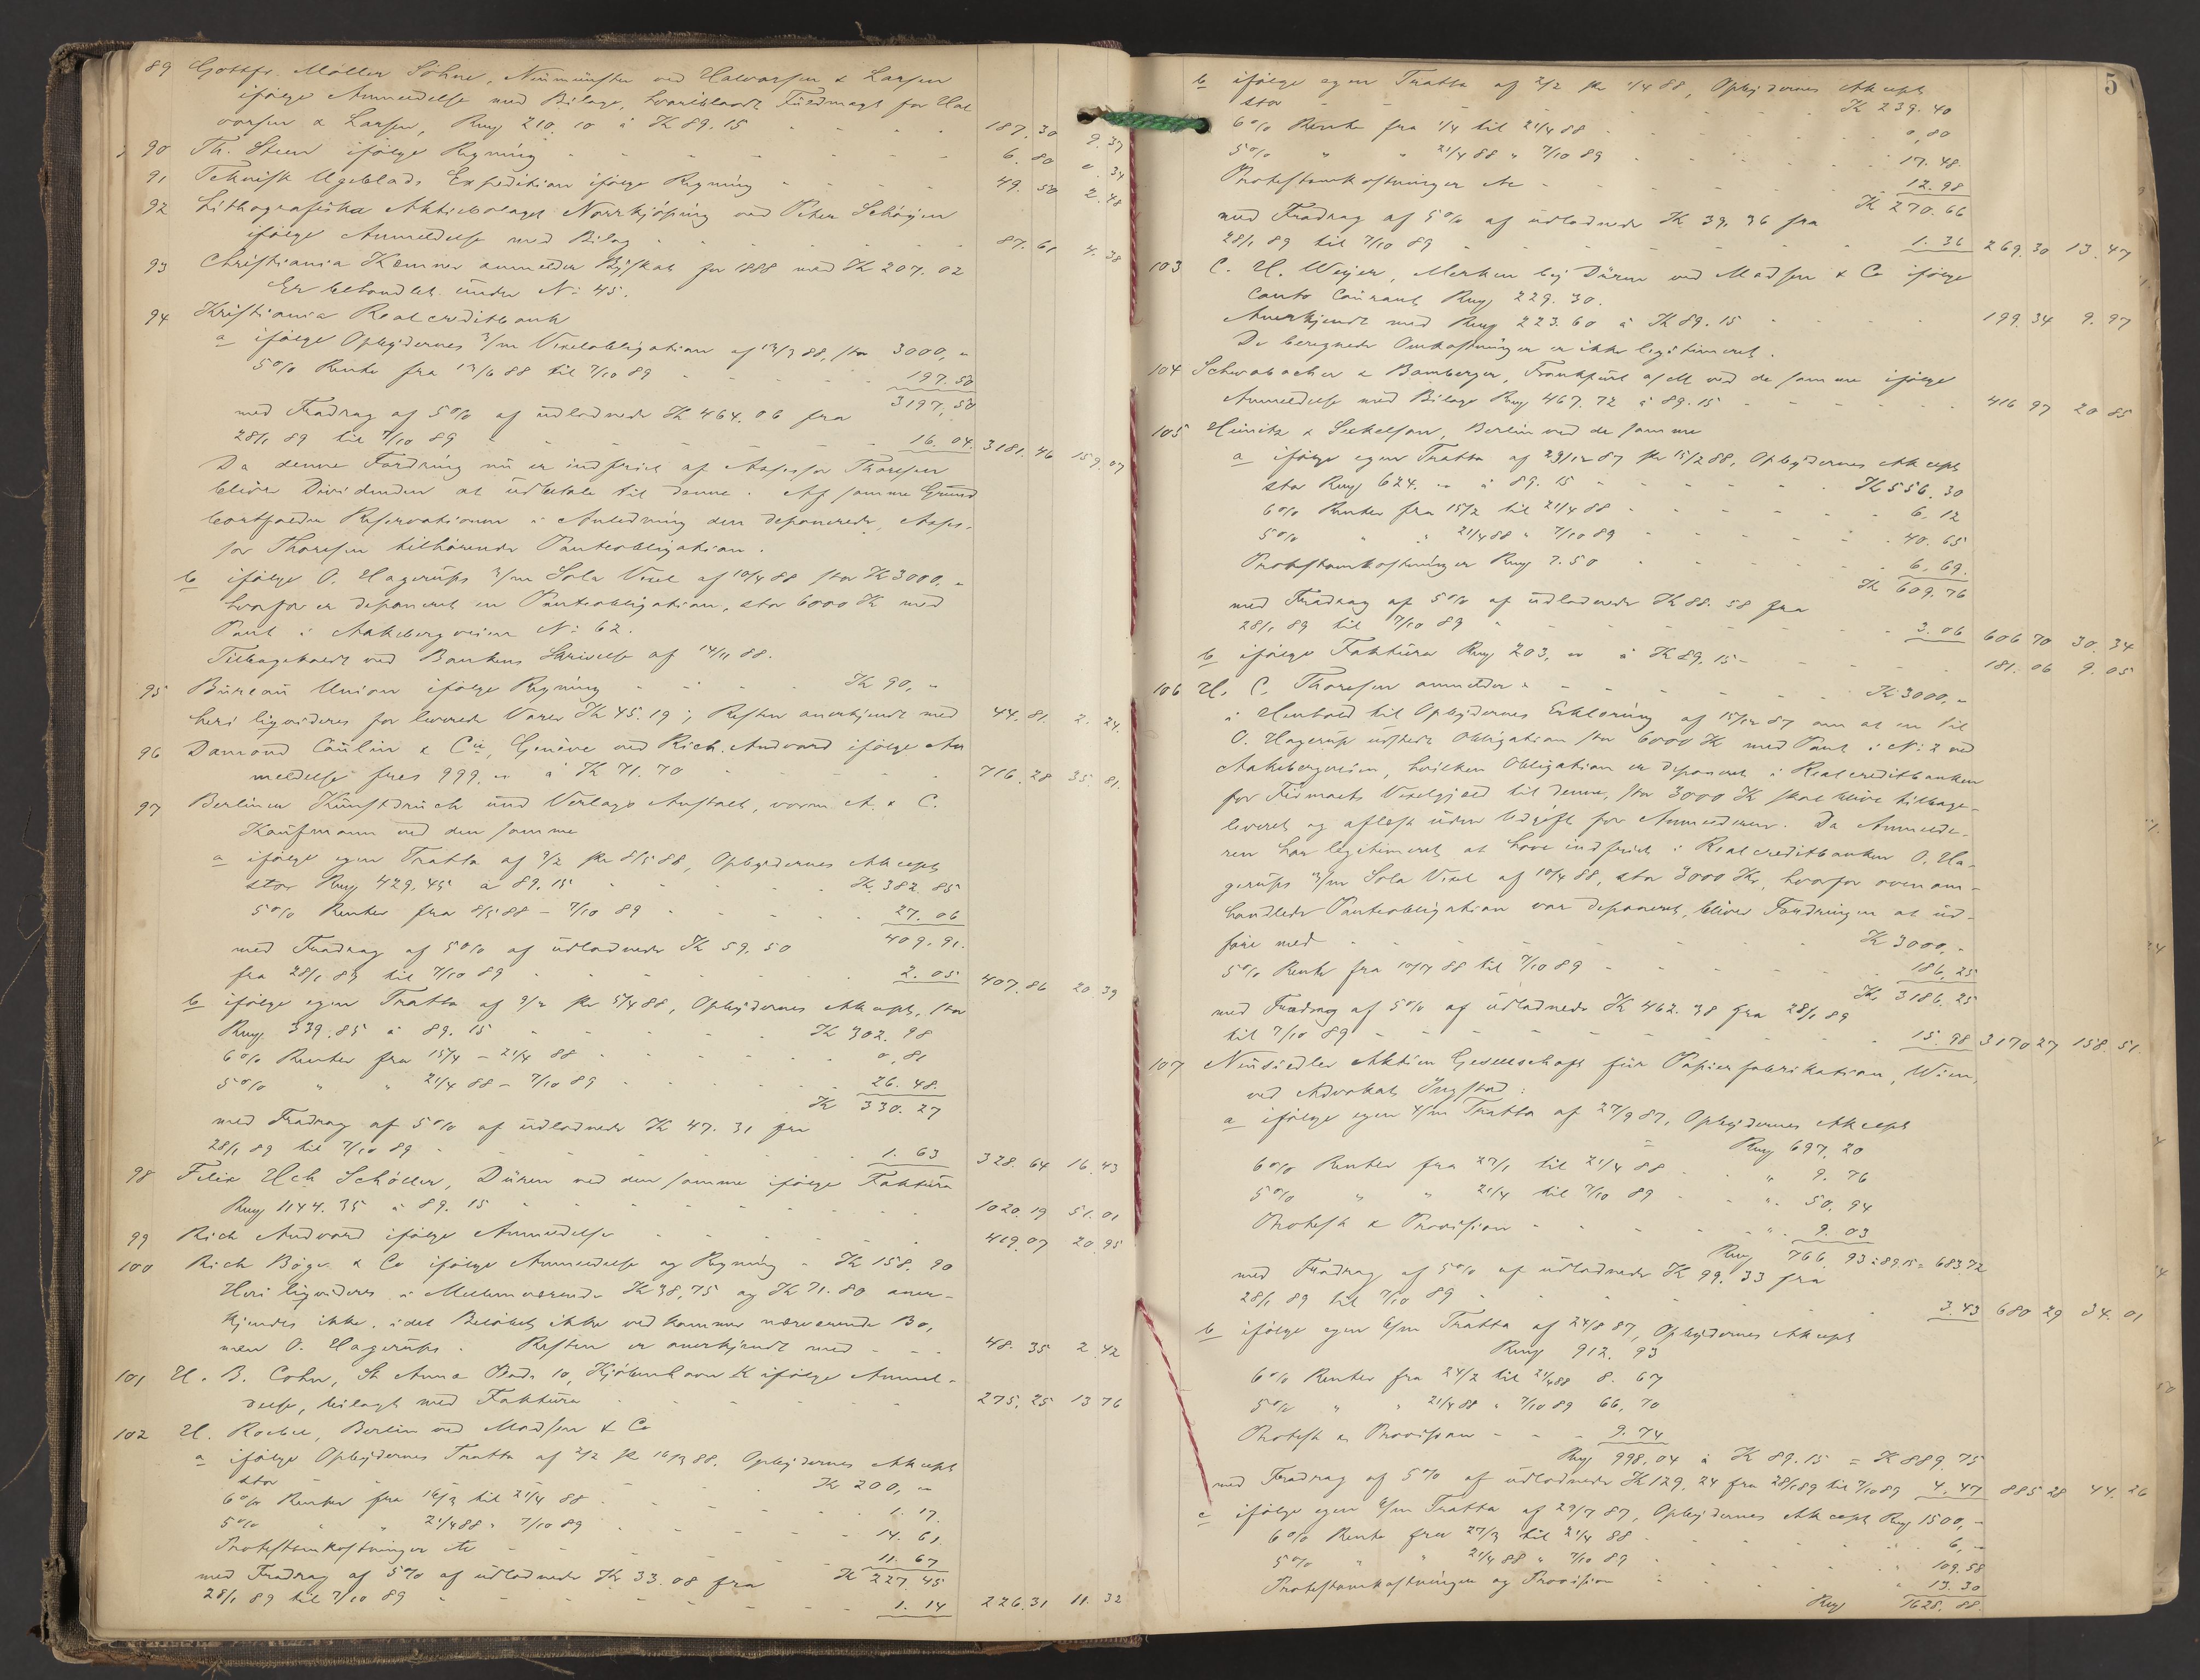 89 Gottfr. Möller Söhne, Neumünster ved Halvorsen & Larsen
ifølge Anmeldelse med Bilage, hvoriblandt Fuldmagt for Hal
vorsen & Larsen, Rmg 210. 10 à K 89. 15 - - - - 187. 30 9. 37
90 Th. Steen ifølge Regning - - - - 6. 80 0. 34
91 Teknisk Ugeblads Expedition ifølge Regning - - - - 49. 50 2. 48
92 Lithografiska Aktiebolaget Norrkjöping ved Peter Schøyen
ifølge Anmeldelse med Bilag - - - - 87. 61 4. 38
93 Christiania Kemner anmelder Byskat for 1888 med K 207. 02
Er behandlet under No 45.
94 Kristiania Realcreditbank
a ifølge Opbydernes 3/m Vexelobligation af 13/3 88, stor 3000, "
5% Rente fra 13/6 88 til 7/10 89 - - - - 197. 50
3197, 50
med Fradrag af 5% af udlodnede K 464. 06 fra
28/1 89 til 7/10 89 - - - - 16. 04. 3181. 46 159. 07
Da denne Fordring nu er indfriet af Assessor Thoresen
bliver Dividenden at udbetale til denne. Af samme Grund
bortfalder Reservationen i Anledning den deponerede, Asses-
sor Thoresen tilhørende Panteobligation.
b ifølge O. Hagerups 3/m Sola Vexel af 10/4 88 stor K 3000, "
hvorfor er deponeret en Panteobligation, stor 6000 K med
Pant i Aakebergveien No 62.
Tilbagekaldt ved Bankens Skrivelse af 14/11 88.
95 Bureau Union ifølge Regning - - - - K 90, "
heri ligvideres for leverede Varer K 45. 19; Resten anerkjendt med 44. 81. 2. 24.
96 Damond Coulin & Cie, Genève ved Rich. Andvord ifølge An
meldelse frcs 999. " à K 71. 70 - - - - 716. 28 35. 81.
97 Berliner Kunstdruck und Verlags Anstalt, vorm A. & C.
Kaufmann ved den samme
a ifølge egen Tratta af 9/2 pr 8/5 88, Opbydernes Akcept
stor Rmg 429. 45 à 89. 15 - - - - K. 382. 85
5% Renter fra 8/5 88 - 7/10 89 - - - - 27. 06
409. 91.
med Fradrag af 5% af udlodnede K 59. 50
fra 28/1 89 til 7/10 89 - - - - 2. 05 407. 86 20. 39
b ifølge egen Tratta af 9/2 pr 5/4 88, Opbydernes Akcept, stor
Rmg. 339. 85 à 89. 15 - - - - K 302. 98
6% Renter fra 15/4 - 21/4 88 - - - - 0, 81
5% " " 21/4 88 - 7/10 89 - - - - 26. 48.
K 330. 27
med Fradrag af 5% af udlodnede K 47. 31 fra
28/1 89 til 7/10 89 - - - - 1. 63 328. 64 16. 43
98 Felix Hch Schöller, Düren ved den samme ifølge Faktura
Rmg 1144. 35 à 89. 15 - - - - 1020. 19 51. 01
99 Rich Andvord ifølge Anmeldelse - - - - 419. 07 20. 95
100 Rich Bøge & Co ifølge Anmeldelse og Regning - K 158. 90
Heri ligvideres i Mellemværende K 38, 75 og K 71. 80 aner-
kjendes ikke, idet Beløbet ikke vedkommer nærværende Bo,
men O. Hagerups. Resten er anerkjendt med - - - 48. 35 2. 42
101 H. B. Cohn, St Anna Plads 10, Kjøbenhavn K ifølge Anmel-
delse, bilagt med Faktura - - - - 275. 25 13 76
102 H. Roebel, Berlin ved Madsen & Co
a ifølge Opbydernes Tratta af 2/2 pr 16/3 88. Opbydernes Akcept
stor - - - - K 200, "
6% Renter fra 16/3 til 21/4 88 - - - - 1. 17.
5% " " 21/4 88 " 7/10 89 - - - - 14. 61.
Protestomkostninger etc - - - - 11. 67
K 227. 45
med Fradrag af 5% af udlodnede K. 33. 08 fra
28/1 89 til 7/10 89 - - - - 1. 14 226. 31 11. 32
5
b ifølge egen Tratta af 2/2 pr 1/4 88, Opbydernes Akcept
stor - - - - K 239. 40
6% Rente fra 1/4 til 21/4 88 - - - - 0, 80
5% " " 21/4 88 " 7/10 89 - - - - 17. 48.
Protestomkostninger etc - - - - 12. 98
K 270. 66
med Fradrag af 5% af udlodnede K. 39. 36 fra
28/1 89 til 7/10 89 - - - - 1. 36 269. 30 13. 47
103 C. H. Weyer, Merken bej Düren ved Madsen & Co ifølge
Conto Courant Rmg 229. 30.
Anerkjendt med Rmg 223. 60 à K 89. 15 - - - - 199. 34 9. 97
De beregnede Omkostninger er ikke legitimeret.
104 Schwabacher & Bamberger, Frankfurt a/M ved de samme ifølge
Anmeldelse med Bilage Rmg 467. 72 à 89. 15 - - - - 416 97 20 85
105 Heinitz & Seckelson, Berlin ved de samme
a ifølge egen Tratta af 29/12 87 pr 15/2 88, Opbydernes Akcept
stor Rmg 624. " à 89. 15 - - - - K 556. 30
6% Renter fra 15/2 til 21/4 88 - - - - 6, 12
5% " " 21/4 88 " 7/10 89 - - - - 40. 65
Protestomkostninger Rmg 7. 50 - - - - 6, 69.
K 609. 76
med Fradrag af 5% af udlodnede K 88. 58 fra
28/1 89 til 7/10 89 - - - - 3. 06 606 70 30. 34
b ifølge Faktura Rmg 203, " à K 89. 15 - - - - 181. 06 9. 05
106 H. C. Thoresen anmelder - - - - K 3000, "
i Henhold til Opbydernes Erklæring af 15/12 87 om at en til
O. Hagerup udstedt Obligation stor 6000 K med Pant i No 2 ved
Aakebergveien, hvilken Obligation er deponeret i Realcreditbanken
for Firmaets Vexelgjæld til denne, stor 3000 K skal blive tilbage-
leveret og aflæst uden Udgift for Anmelderen. Da Anmelde-
ren har legitimeret at have indfriet i Realcreditbanken O. Ha-
gerups 3/m Sola Vexel af 10/4 88, stor 3000 Kr, hvorfor ovenom-
handlede Panteobligation var deponeret, bliver Fordringen at ud-
føre med - - - - K 3000, "
5% Rente fra 10/7 88 til 7/10 89 - - - - 186, 25
K. 3186. 25
med Fradrag af 5% af udlodnede K 462. 38 fra 28/1 89
til 7/10 89 - - - - 15. 98 3170 27 158. 51.
107 Neusiedler Aktien Gesellschaft für Papierfabrikation, Wien,
ved Advokat Yngstad:
a ifølge egen 4/m Tratta af 27/9 87, Opbydernes Akcept
Rmg 697, 20
6% Renter fra 27/1 til 21/4 88 - - " 9. 76
5% " " 21/4 til 7/10 89 - - " 50. 94
Protest & Provision - - - - " 9. 03
Rmg 766. 93 à 89.15 = 683.72
med Fradrag af 5% af udlodnede K 99. 33 fra
28/1 89 til 7/10 89 - - - - 3. 43 680 29 34. 01
b ifølge egen 6/m Tratta af 24/8 87, Opbydernes Akcept
Rmg 912. 93
6% Renter fra 24/2 til 21/4 88 8. 67
5% " " 21/4 88 " 7/10 89 66, 70
Protest & Provision - - - 9. 74
Rmg 998, 04 à K 89. 15 = K 889. 75
med Fradrag af 5% af udlodnede K 129. 24 fra 28/1 89 til 7/10 89 4, 47 885 28 44. 26
c ifølge egen 8/m Tratta af 29/7 87, Opbydernes Akcept Rmg 1500, "
6% Rente fra 27/3 til 21/4 88 - - - - 6, "
5% " " 21/4 88 " 7/10 89 - - - - 109. 58
Protestomkostninger og Provision - - - - 13. 30
Rmg 1628. 88.